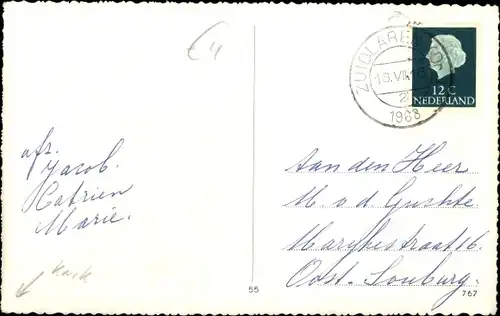 €4
afz.
Jacob.
Catrien
Marie.
kerk
55
ZUIDLAREN
16.VII.18
2
1968
12 C
NEDERLAND
Aan den Heer
M. v d Guchte
Marijkestraat 16.
Oost-Souburg.
767